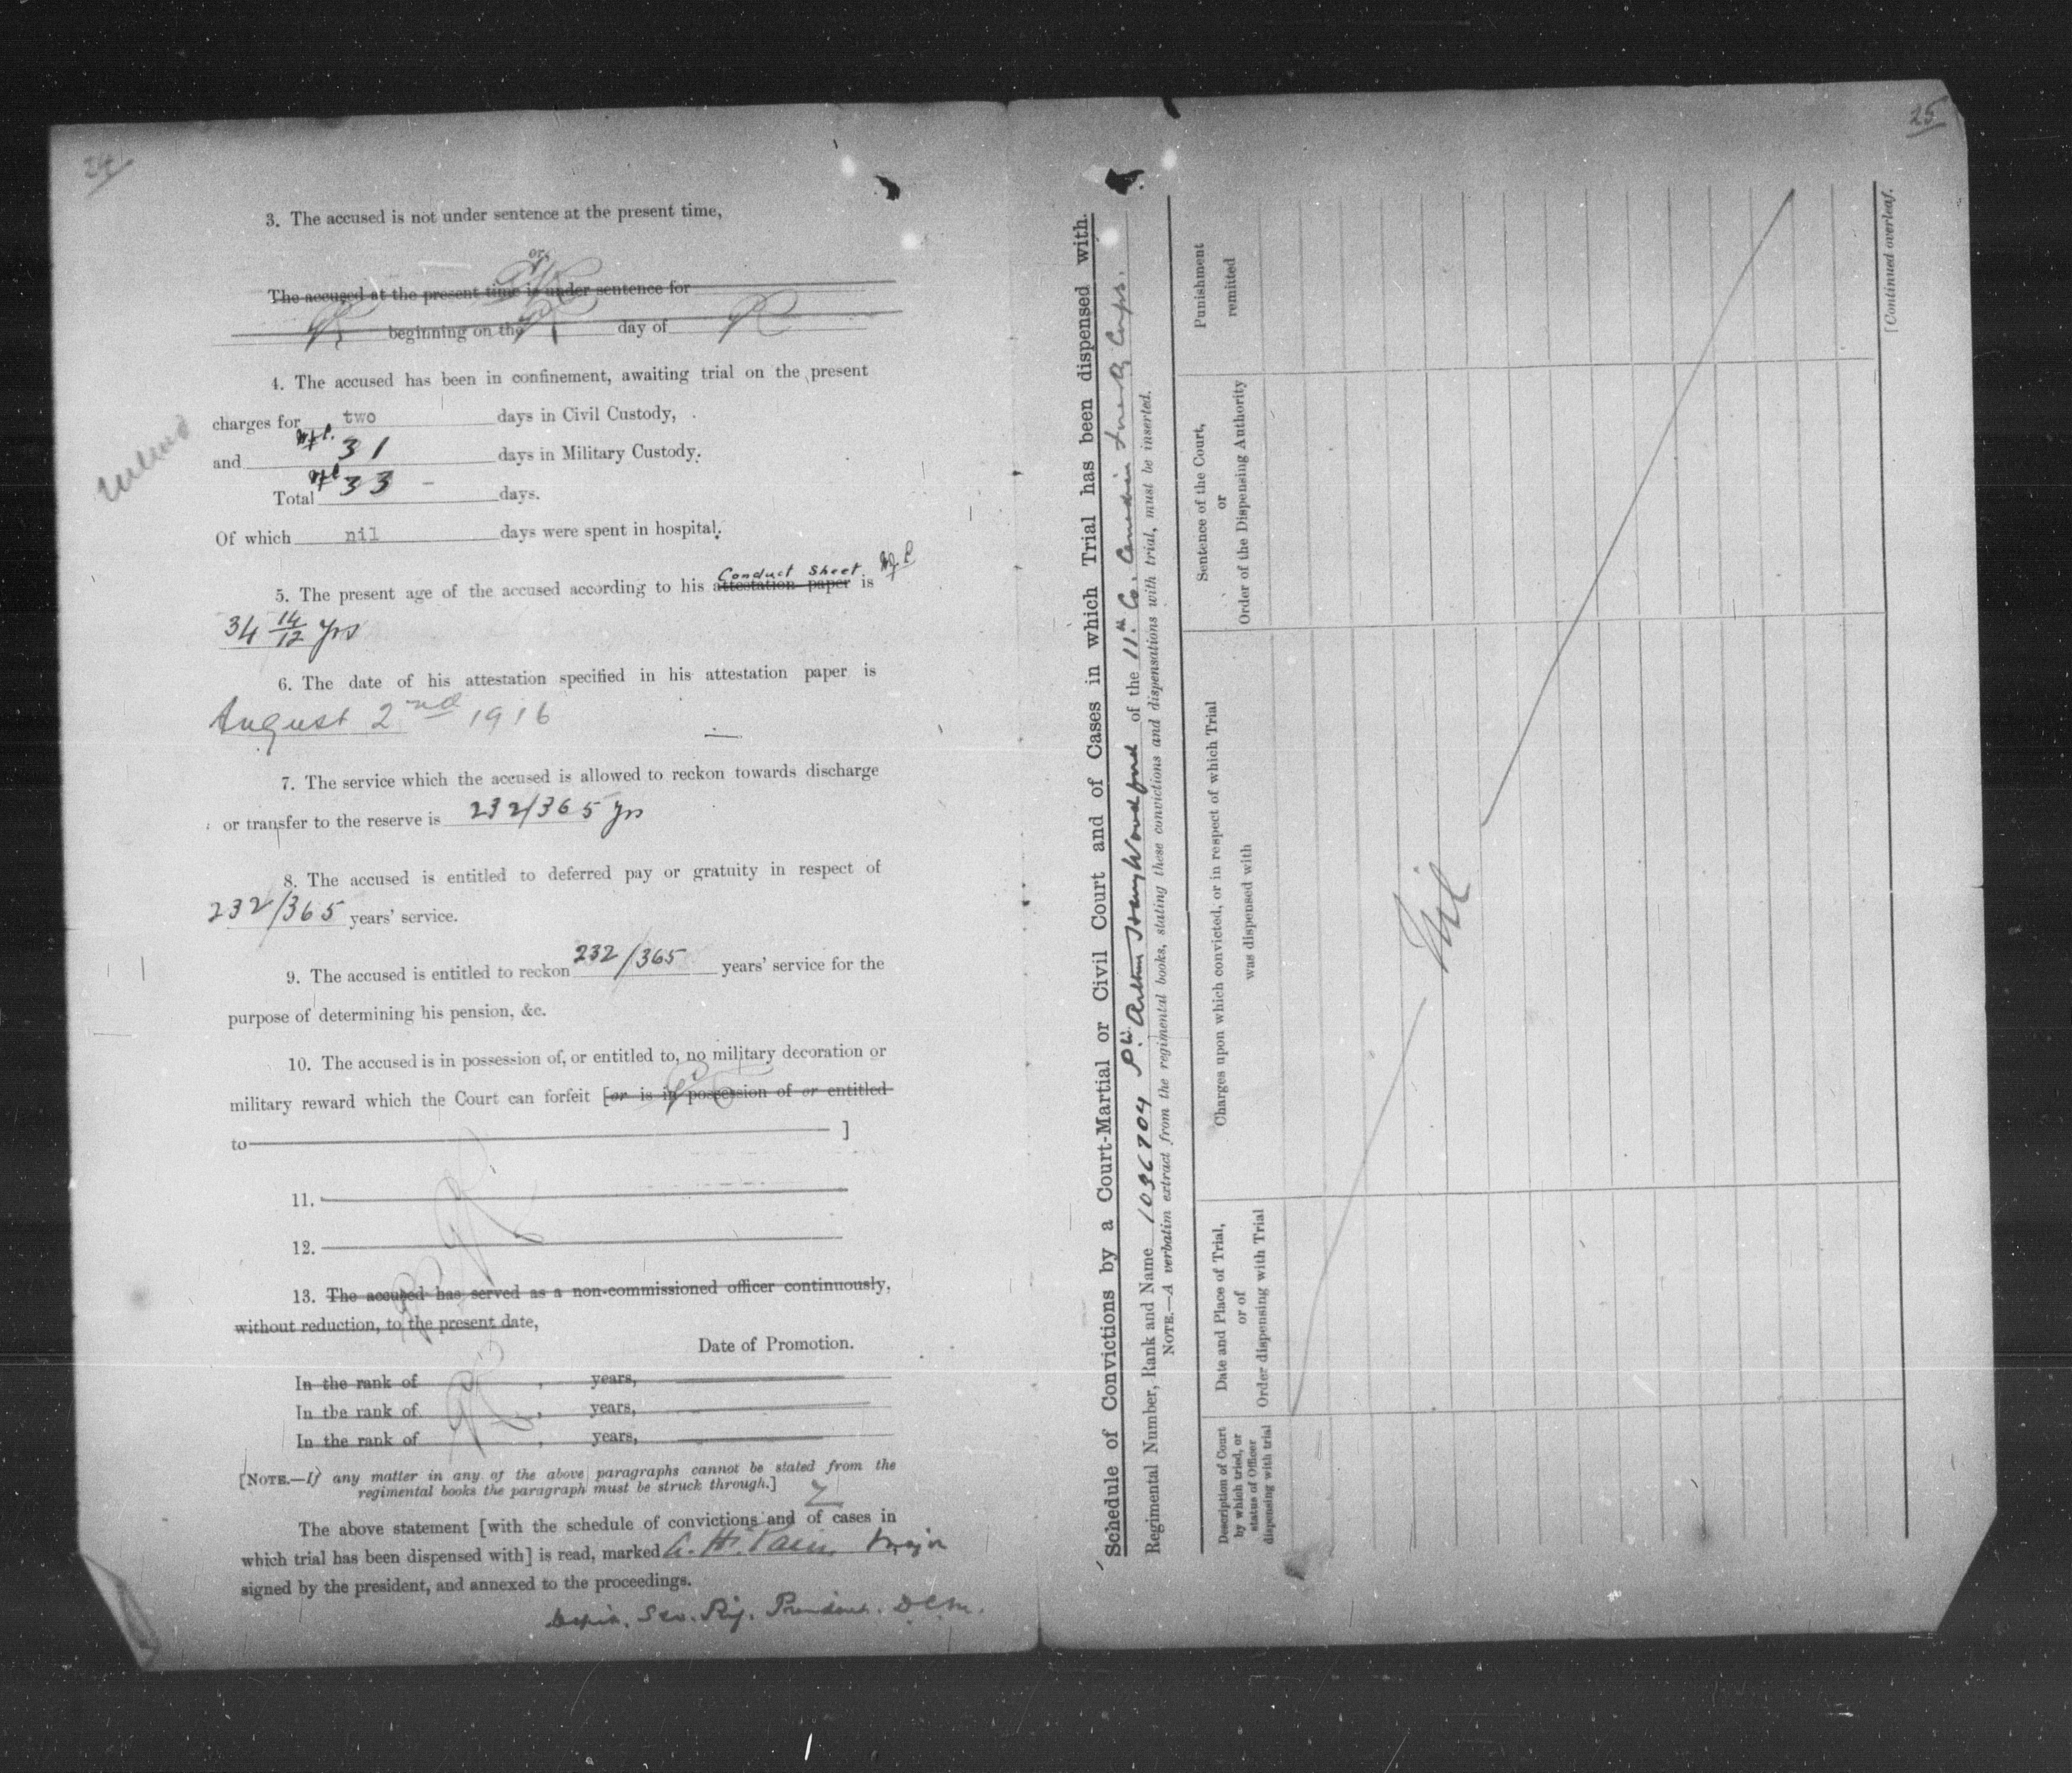 24
3. The accused is not under sentence at the present time,
or
The accused at the present time is under sentence for
beginning on the day of
4. The accused has been in confinement, awaiting trial on the present
charges for two days in Civil Custody,
and 31 days in Military Custody.
Total 33 - days.
Of which nil days were spent in hospital.
Conduct Sheet
5. The present age of the accused according to his attestation paper is
34 14/12 yrs
6. The date of his attestation specified in his attestation paper is
August 2nd 1916
7. The service which the accused is allowed to reckon towards discharge
or transfer to the reserve is 232/365 yrs
8. The accused is entitled to deferred pay or gratuity in respect of
232/365 years' service.
9. The accused is entitled to reckon 232/365 years' service for the
purpose of determining his pension, &c.
10. The accused is in possession of, or entitled to, no military decoration or
military reward which the Court can forfeit [or is in possession of or entitled
to ]
11.
12.
13. The accused has served as a non-commissioned officer continuously,
without reduction, to the present date,
Date of Promotion.
In the rank of , years,
In the rank of , years,
In the rank of , years,
[NOTE.—If any matter in any of the above paragraphs cannot be stated from the
regimental books the paragraph must be struck through.]
Z
The above statement [with the schedule of convictions and of cases in
which trial has been dispensed with] is read, marked A. H. Major
signed by the president, and annexed to the proceedings.
President. DCM.
25
Schedule of Convictions by a Court-Martial or Civil Court and of Cases in which Trial has been dispensed with.
Regimental Number, Rank and Name 1036704 Pte. Arthur Henry Woodford of the 11th Co. Canadian Forestry Corps.
NOTE.—A verbatim extract from the regimental books, stating these convictions and dispensations with trial, must be inserted.
Description of Court
by which tried, or
status of Officer
dispensing with trial
Date and Place of Trial,
or of
Order dispensing with Trial
Charges upon which convicted, or in respect of which Trial
was dispensed with
Sentence of the Court,
or
Order of the Dispensing Authority
Punishment
remitted
Nil
[Continued overleaf.